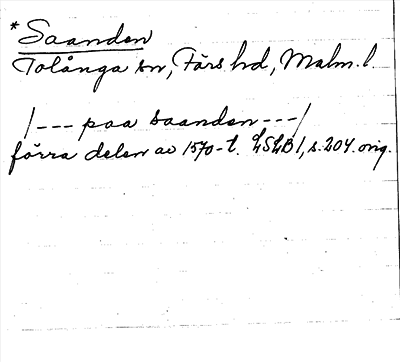 *Saanden
Tolånga sn, Färs hd, Malm. l.
/--- paa saanden ---/
förra delen av 1570-t. LSLB 1, s. 204. orig.